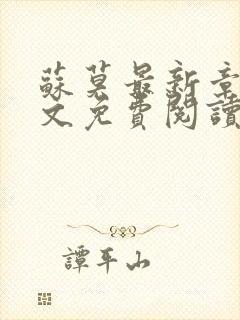 蘇莫最新章
文免費閱讀
譚平山